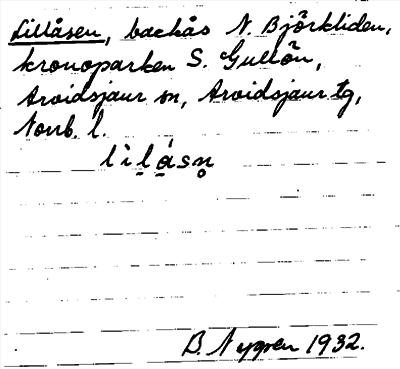 Lillåsen, backås N. Björkliden,
kronoparken S. Gullön,
Arvidsjaur sn, Arvidsjaur tg,
Norrb. l.
lìl̠å̀sn̥
B. Nygren 1932.